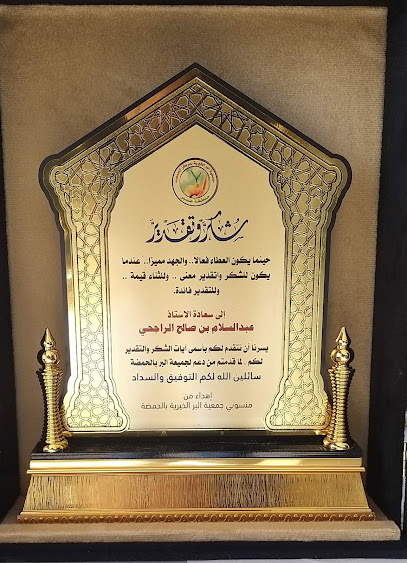 شكر وتقدير
حينما يكون العطاء فعالا.. والجهد مميزا.. عندما
يكون للشكر والتقدير معنى .. وللثناء قيمة ..
وللتقدير فائدة.
إلى سعادة الاستاذ
عبدالسلام بن صالح الراجحي
يسرنا أن نتقدم لكم بأسمى آيات الشكر والتقدير
لكم . لما قدمتم من دعم لجميعة البر بالحمضة
سائلين الله لكم التوفيق والسداد
إهداء من
منسوبي جمعية البر الخيرية بالحمضة